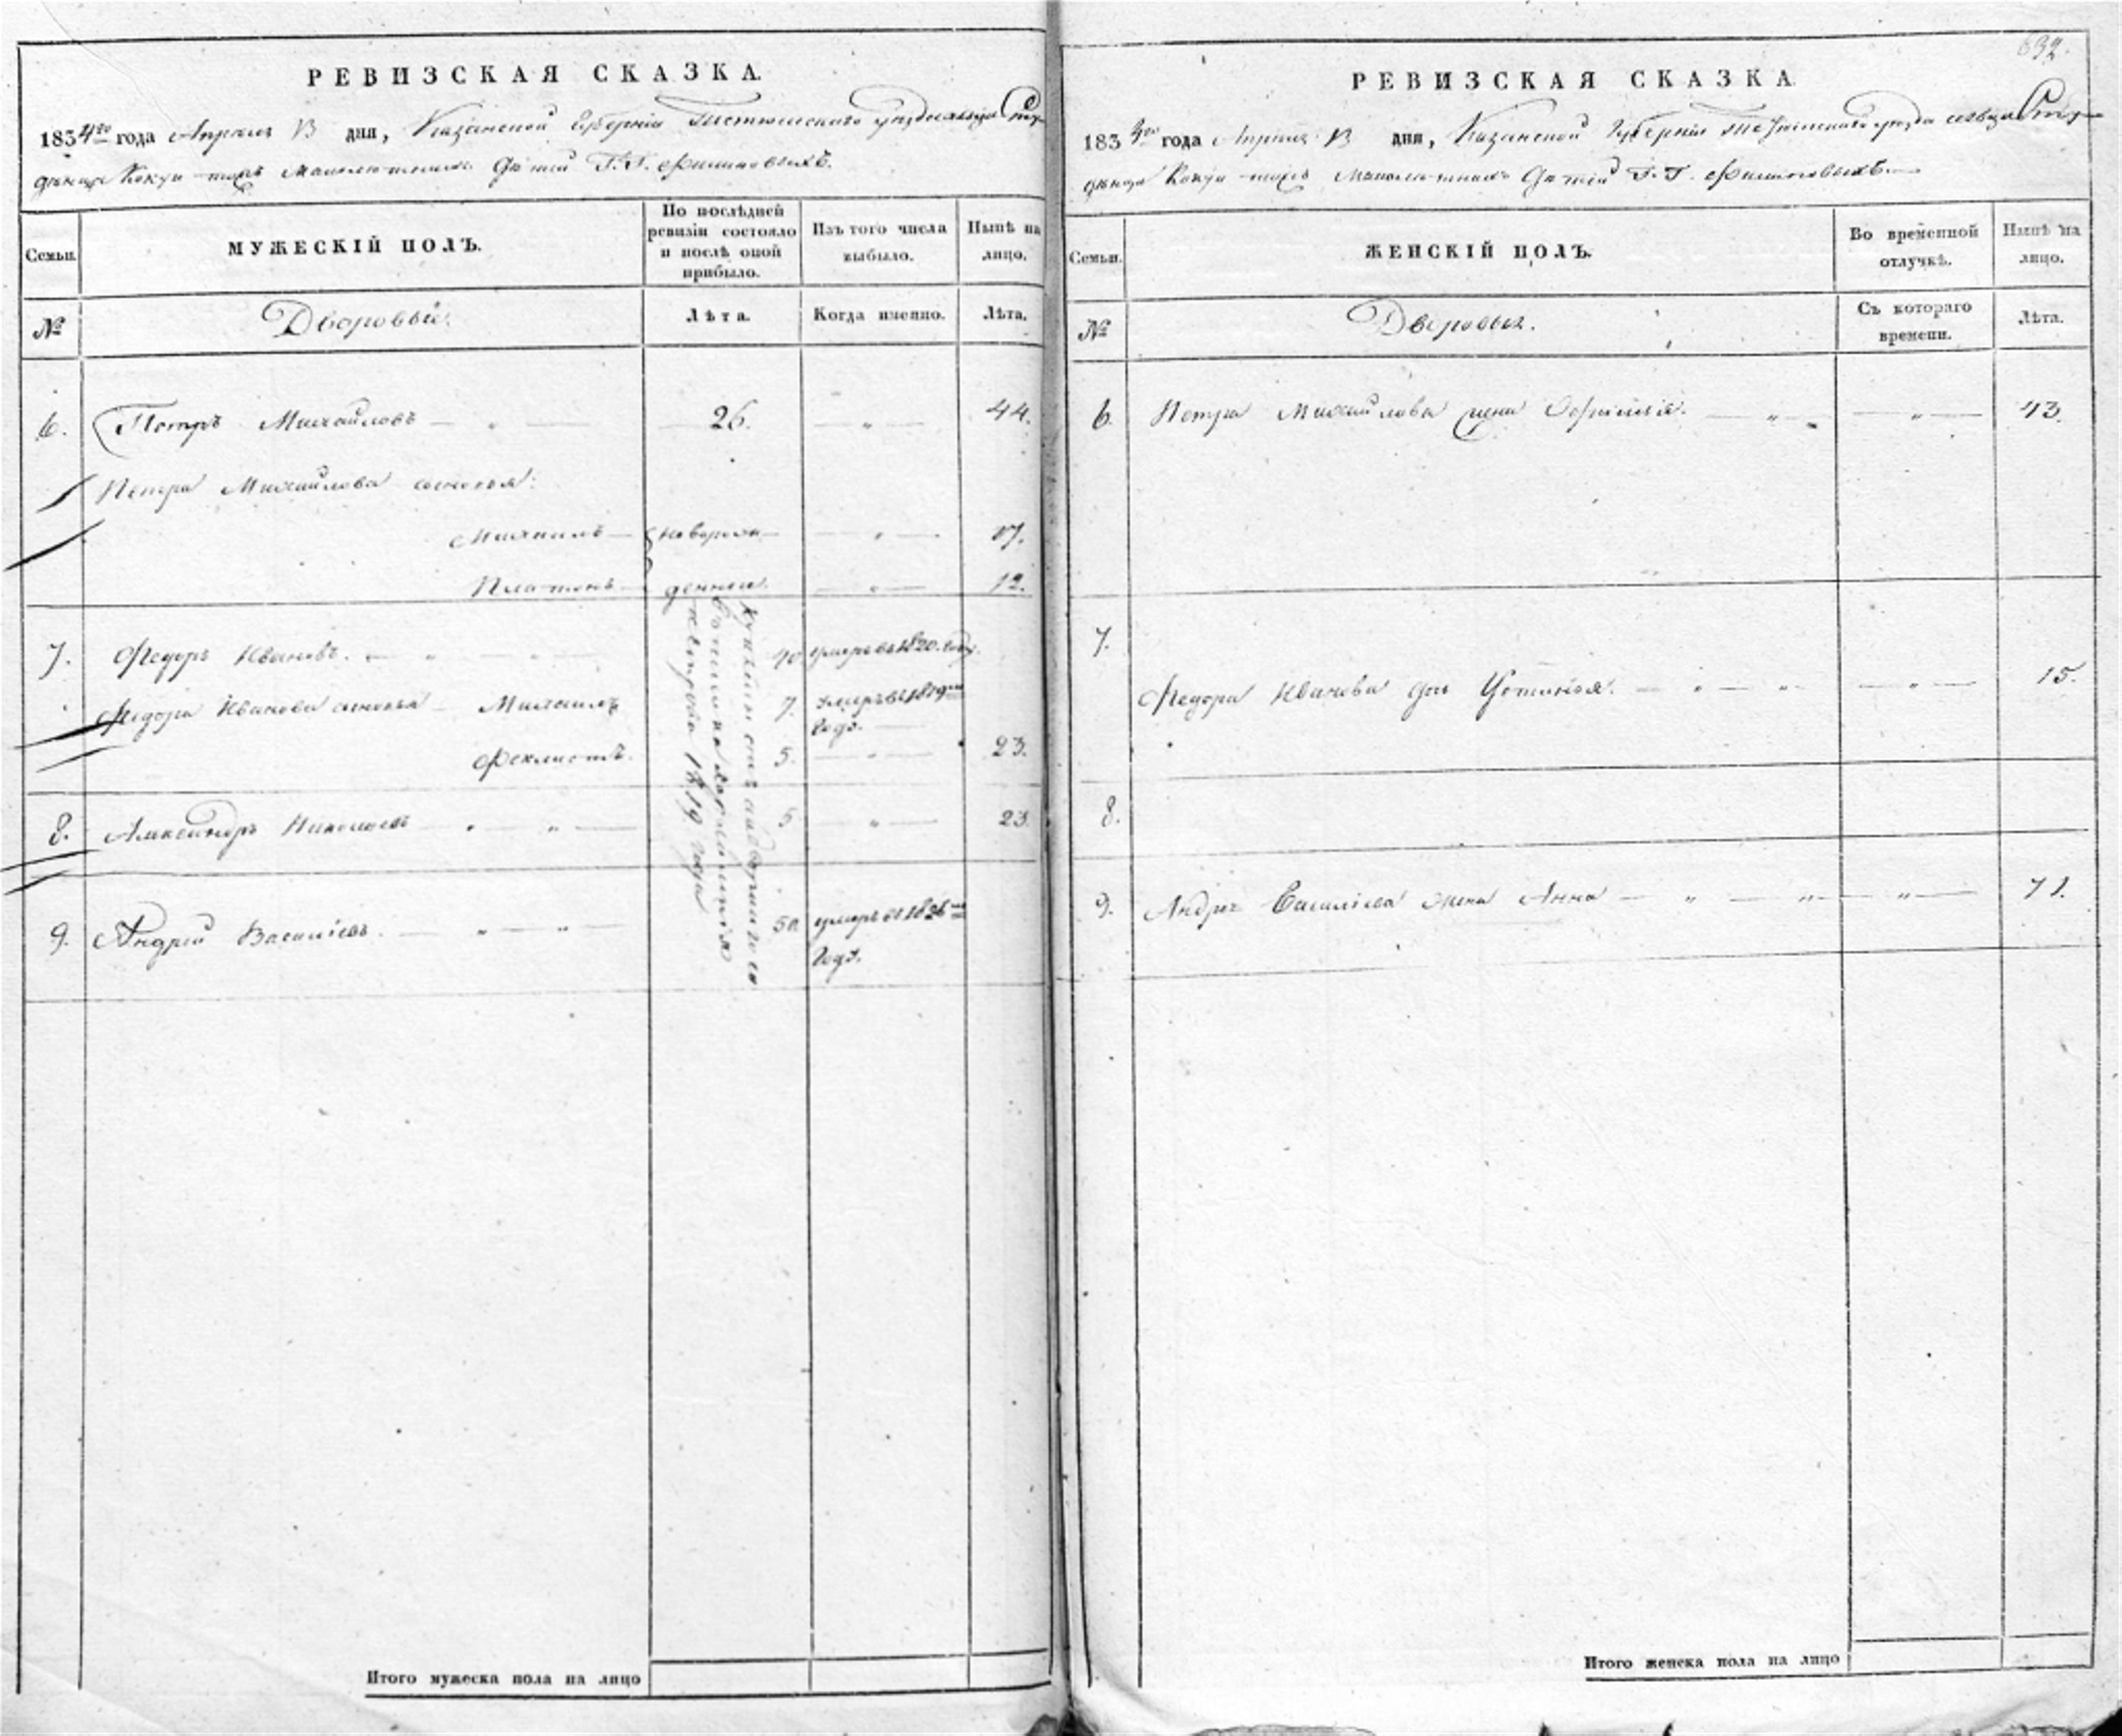 РЕВИЗСКАЯ СКАЗКА.
1834го года Апреля дня, Казанской Губернии Тетюшскаго уезда сельца
Кокуи тожъ малолетныхъ Детей Г.Г. Филиповыхъ.
Семьи.
МУЖЕСКІЙ ПОЛЪ.
По послѣдней ревизіи состояло и послѣ оной прибыло.
Изъ того числа выбыло.
Нынѣ на лицо.
№
Дворовые.
Лѣта.
Когда именно.
Лѣта.
6. Петръ Михайловъ — „ — 26. — „ — 44.
Петра Михайлова сыновья:
Михаилъ — новорож — „ — 17.
Платонъ — денные. — „ — 12.
7. Федоръ Ивановъ. — „ — 40 умеръ въ 1820. году.
Федора Иванова сыновья — Михаилъ 7. умеръ въ 1819м
Годе.
Феклистъ. 5. — „ — 23.
8. Александръ Николаевъ — „ — 5 — „ — 23.
9. Андрей Василіевъ. — „ — „ — 50. умеръ въ 1826м
Годе.
1819 года
632.
РЕВИЗСКАЯ СКАЗКА
1834го года Апреля дня, Казанской Губерніи Тетюшскаго уезда сельца
Кокуи тожъ малолетныхъ Детей Г.Г. Филиповыхъ.—
Семьи.
ЖЕНСКІЙ ПОЛЪ.
Во временной отлучкѣ.
Нынѣ на лицо.
№
Дворовыя.
Съ котораго времени.
Лѣта.
6. Петра Михайлова жена — „ — „ — 43.
7.
Федора Иванова дочь Устинья. — „ — „ — „ — 15.
8.
9. Андрея Василіева жена Анна — „ — „ — „ — 71.
Итого мужеска пола на лицо
Итого женска пола на лицо